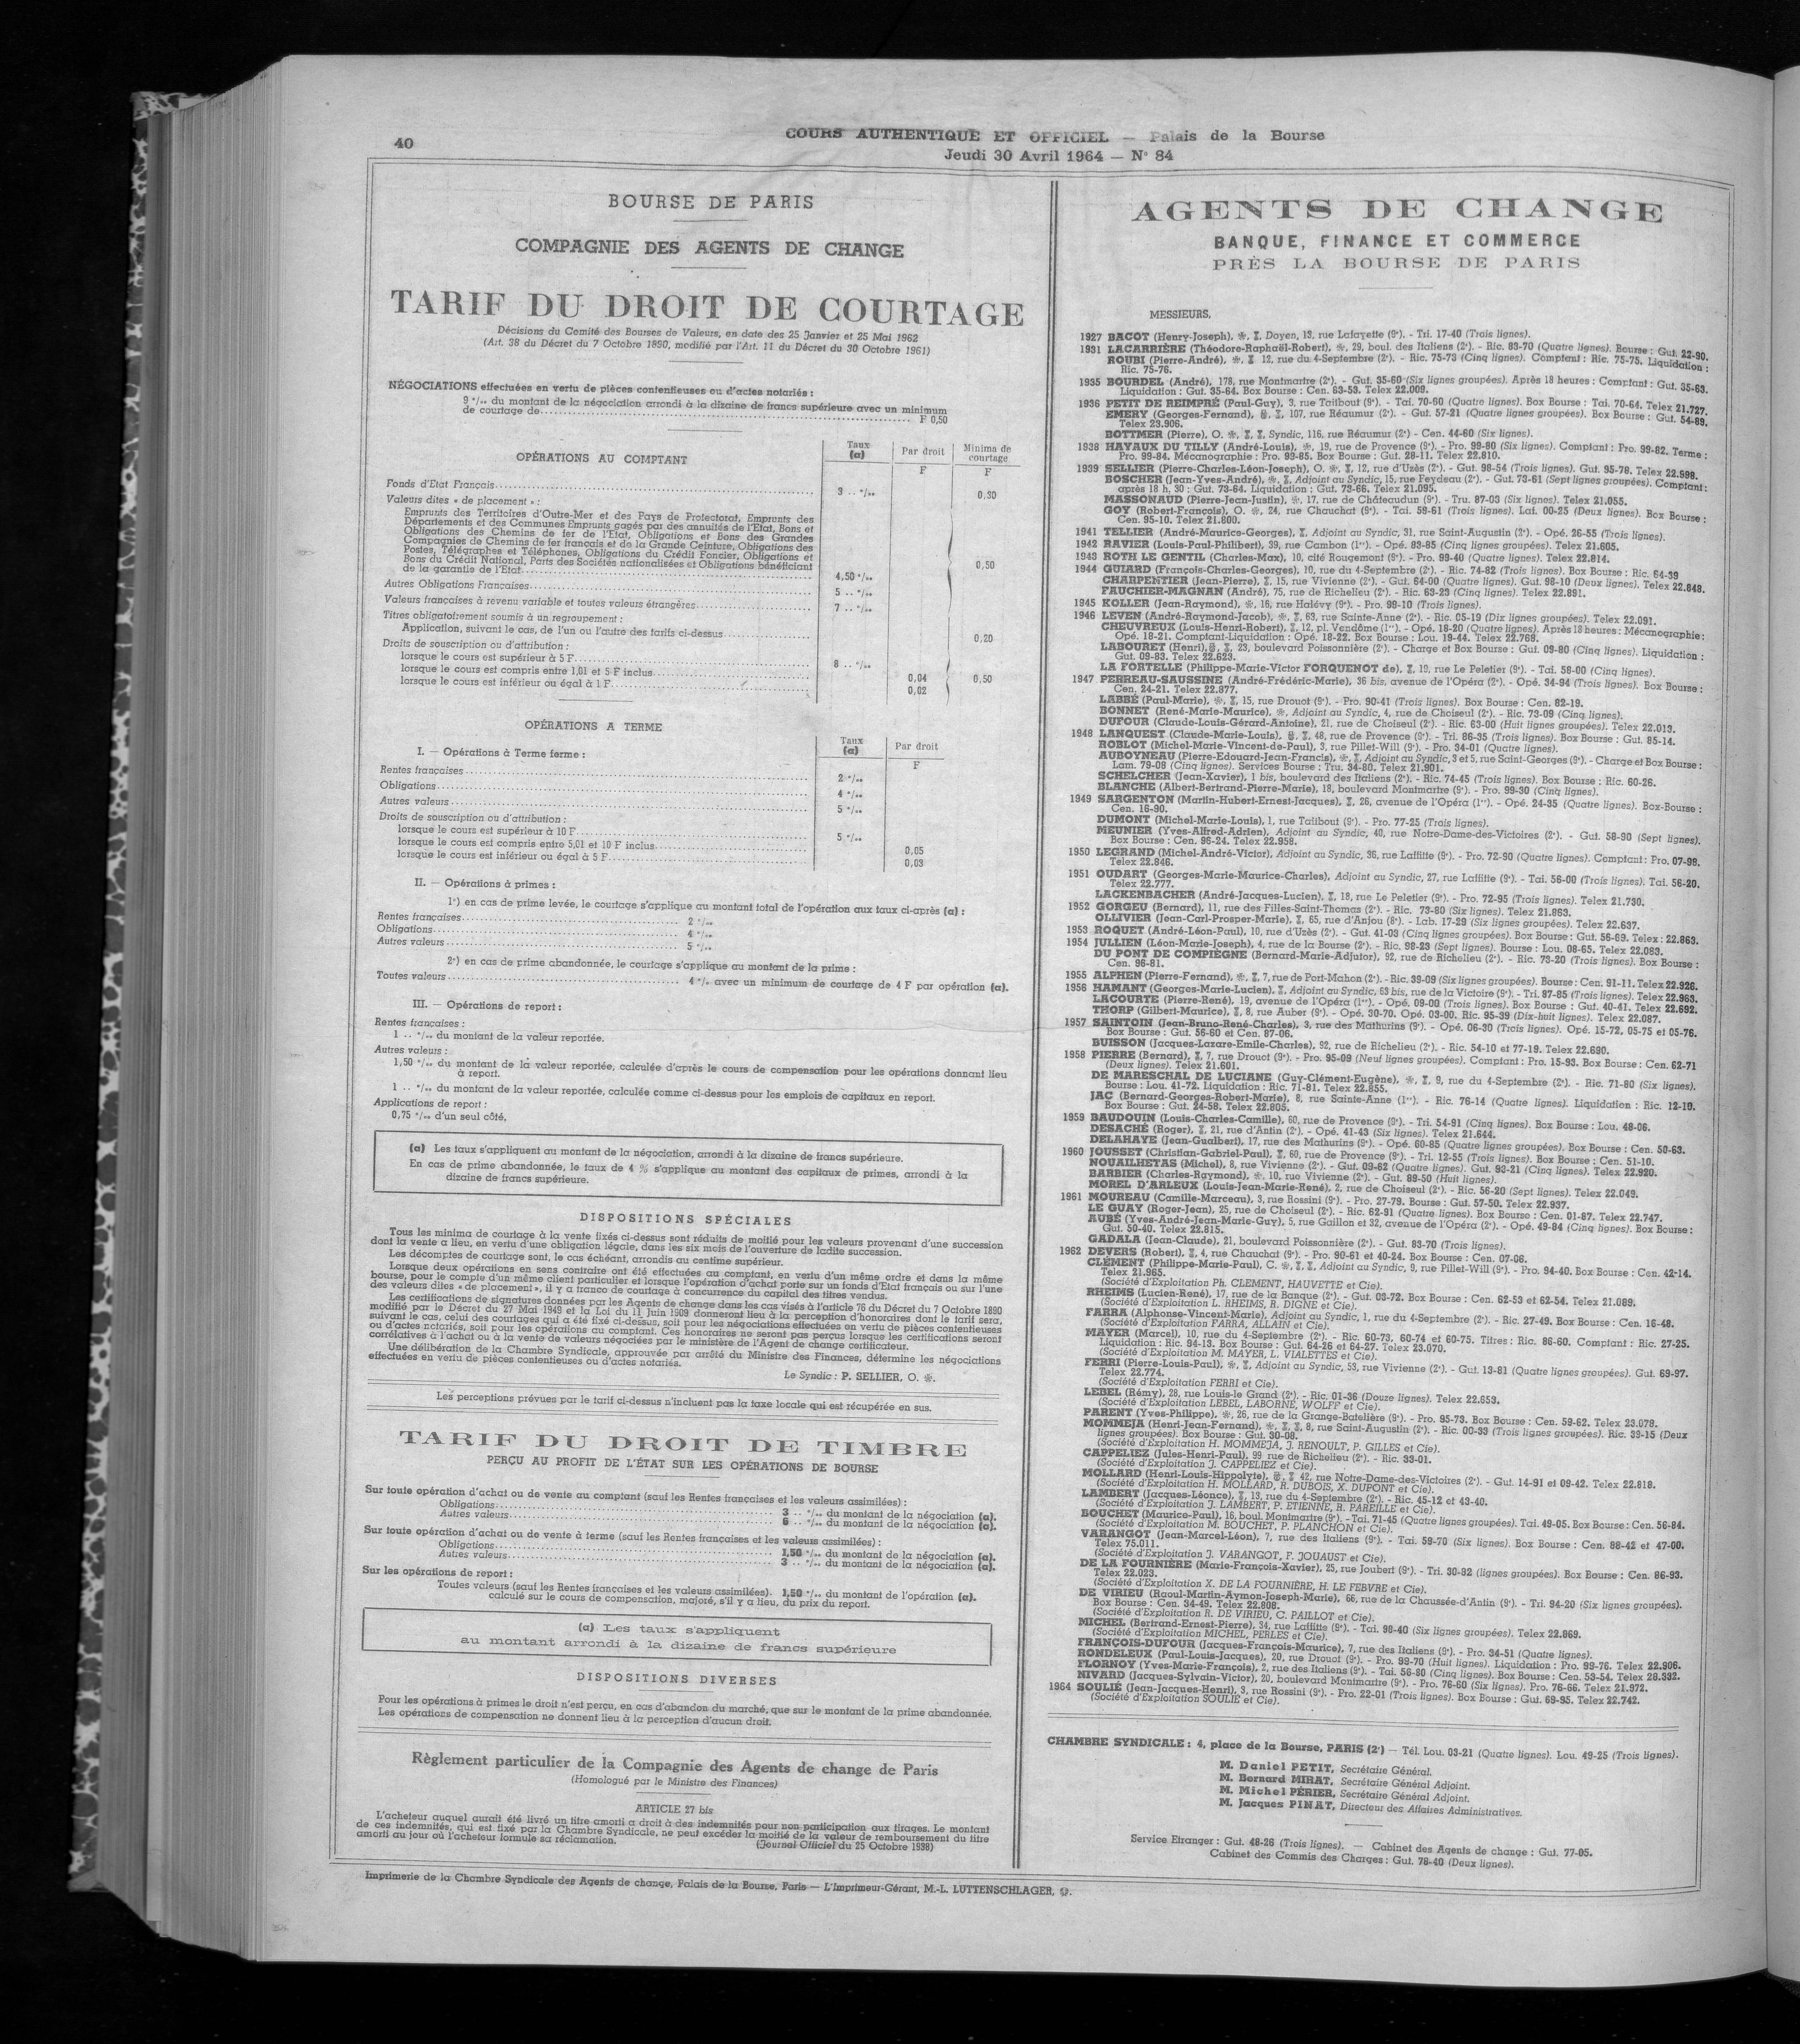 40
COURS AUTHENTIQUE ET OFFICIEL — Palais de la Bourse
Jeudi 30 Avril 1964 — N° 84
BOURSE DE PARIS
COMPAGNIE DES AGENTS DE CHANGE
TARIF DU DROIT DE COURTAGE
Décisions du Comité des Bourses de Valeurs, en date des 25 Janvier et 25 Mai 1962
(Art. 38 du Décret du 7 Octobre 1890, modifié par l'Art. 11 du Décret du 30 Octobre 1961)
NÉGOCIATIONS effectuées en vertu de pièces contentieuses ou d'actes notariés :
9 °/°° du montant de la négociation arrondi à la dizaine de francs supérieure avec un minimum
de courtage de.......... F 0,50
OPÉRATIONS AU COMPTANT
Taux (a) Par droit Minima de courtage
F F
Fonds d'Etat Français.......... 3 .. °/°° 0,30
Valeurs dites « de placement » :
Emprunts des Territoires d'Outre-Mer et des Pays de Protectorat, Emprunts des
Départements et des Communes Emprunts gagés par des annuités de l'Etat, Bons et
Obligations des Chemins de fer de l'Etat, Obligations et Bons des Grandes
Compagnies de Chemins de fer français et de la Grande Ceinture, Obligations des
Postes, Télégraphes et Téléphones, Obligations du Crédit Foncier, Obligations et
Bons du Crédit National, Parts des Sociétés nationalisées et Obligations bénéficiant
de la garantie de l'Etat.......... 4,50 °/°° 0,50
Autres Obligations Françaises.......... 5 .. °/°°
Valeurs françaises à revenu variable et toutes valeurs étrangères.......... 7 .. °/°°
Titres obligatoirement soumis à un regroupement :
Application, suivant le cas, de l'un ou l'autre des tarifs ci-dessus.......... 0,20
Droits de souscription ou d'attribution :
lorsque le cours est supérieur à 5 F.......... 8 .. °/°°
lorsque le cours est compris entre 1,01 et 5 F inclus.......... 0,04 0,50
lorsque le cours est inférieur ou égal à 1 F.......... 0,02
OPÉRATIONS A TERME
Taux (a) Par droit
F
I. — Opérations à Terme ferme :
Rentes françaises.......... 2 °/°°
Obligations.......... 4 °/°°
Autres valeurs.......... 5 °/°°
Droits de souscription ou d'attribution :
lorsque le cours est supérieur à 10 F.......... 5 °/°°
lorsque le cours est compris entre 5,01 et 10 F inclus.......... 0,05
lorsque le cours est inférieur ou égal à 5 F.......... 0,03
II. — Opérations à primes :
1°) en cas de prime levée, le courtage s'applique au montant total de l'opération aux taux ci-après (a) :
Rentes françaises.......... 2 °/°°
Obligations.......... 4 °/°°
Autres valeurs.......... 5 °/°°
2°) en cas de prime abandonnée, le courtage s'applique au montant de la prime :
Toutes valeurs.......... 4 °/° avec un minimum de courtage de 4 F par opération (a).
III. — Opérations de report :
Rentes françaises :
1 .. °/°° du montant de la valeur reportée.
Autres valeurs :
1,50 °/°° du montant de la valeur reportée, calculée d'après le cours de compensation pour les opérations donnant lieu
à report.
1 .. °/°° du montant de la valeur reportée, calculée comme ci-dessus pour les emplois de capitaux en report.
Applications de report :
0,75 °/°° d'un seul côté.
(a) Les taux s'appliquent au montant de la négociation, arrondi à la dizaine de francs supérieure.
En cas de prime abandonnée, le taux de 4 % s'applique au montant des capitaux de primes, arrondi à la
dizaine de francs supérieure.
DISPOSITIONS SPÉCIALES
Tous les minima de courtage à la vente fixés ci-dessus sont réduits de moitié pour les valeurs provenant d'une succession
dont la vente a lieu, en vertu d'une obligation légale, dans les six mois de l'ouverture de ladite succession.
Les décomptes de courtage sont, le cas échéant, arrondis au centime supérieur.
Lorsque deux opérations en sens contraire ont été effectuées au comptant, en vertu d'un même ordre et dans la même
bourse, pour le compte d'un même client particulier et lorsque l'opération d'achat porte sur un fonds d'Etat français ou sur l'une
des valeurs dites « de placement », il y a franco de courtage à concurrence du capital des titres vendus.
Les certifications de signatures données par les Agents de change dans les cas visés à l'article 76 du Décret du 7 Octobre 1890
modifié par le Décret du 27 Mai 1949 et la Loi du 11 Juin 1909 donneront lieu à la perception d'honoraires dont le tarif sera,
suivant le cas, celui des courtages qui a été fixé ci-dessus, soit pour les négociations effectuées en vertu de pièces contentieuses
ou d'actes notariés, soit pour les opérations au comptant. Ces honoraires ne seront pas perçus lorsque les certifications seront
corrélatives à l'achat ou à la vente de valeurs négociées par le ministère de l'Agent de change certificateur.
Une délibération de la Chambre Syndicale, approuvée par arrêté du Ministre des Finances, détermine les négociations
effectuées en vertu de pièces contentieuses ou d'actes notariés.
Le Syndic : P. SELLIER, O. ❀.
Les perceptions prévues par le tarif ci-dessus n'incluent pas la taxe locale qui est récupérée en sus.
TARIF DU DROIT DE TIMBRE
PERÇU AU PROFIT DE L'ÉTAT SUR LES OPÉRATIONS DE BOURSE
Sur toute opération d'achat ou de vente au comptant (sauf les Rentes françaises et les valeurs assimilées) :
Obligations.......... 3 .. °/°° du montant de la négociation (a).
Autres valeurs.......... 6 .. °/°° du montant de la négociation (a).
Sur toute opération d'achat ou de vente à terme (sauf les Rentes françaises et les valeurs assimilées) :
Obligations.......... 1,50 °/°° du montant de la négociation (a).
Autres valeurs.......... 3 .. °/°° du montant de la négociation (a).
Sur les opérations de report :
Toutes valeurs (sauf les Rentes françaises et les valeurs assimilées). 1,50 °/°° du montant de l'opération (a).
calculé sur le cours de compensation, majoré, s'il y a lieu, du prix du report.
(a) Les taux s'appliquent
au montant arrondi à la dizaine de francs supérieure
DISPOSITIONS DIVERSES
Pour les opérations à primes le droit n'est perçu, en cas d'abandon du marché, que sur le montant de la prime abandonnée.
Les opérations de compensation ne donnent lieu à la perception d'aucun droit.
Règlement particulier de la Compagnie des Agents de change de Paris
(Homologué par le Ministre des Finances)
ARTICLE 27 bis
L'acheteur auquel aurait été livré un titre amorti a droit à des indemnités pour non participation aux tirages. Le montant
de ces indemnités, qui est fixé par la Chambre Syndicale, ne peut excéder la moitié de la valeur de remboursement du titre
amorti au jour où l'acheteur formule sa réclamation.
(Journal Officiel du 25 Octobre 1938)
AGENTS DE CHANGE
BANQUE, FINANCE ET COMMERCE
PRÈS LA BOURSE DE PARIS
MESSIEURS,
1927 BACOT (Henry-Joseph), ❀, ⚔, Doyen, 13, rue Lafayette (9e). - Tri. 17-40 (Trois lignes).
1931 LACARRIÈRE (Théodore-Raphaël-Robert), ❀, 29, boul. des Italiens (2e). - Ric. 83-70 (Quatre lignes). Bourse : Gut. 22-90.
ROUBI (Pierre-André), ❀, ⚔ 12, rue du 4-Septembre (2e). - Ric. 75-73 (Cinq lignes). Comptant : Ric. 75-75. Liquidation :
Ric. 75-76.
1935 BOURDEL (André), 178, rue Montmartre (2e). - Gut. 35-60 (Six lignes groupées). Après 18 heures : Comptant : Gut. 35-63.
Liquidation : Gut. 35-64. Box Bourse : Cen. 83-53. Telex 22.009.
1936 PETIT DE REIMPRÉ (Paul-Guy), 3, rue Taitbout (9e). - Tai. 70-60 (Quatre lignes). Box Bourse : Tai. 70-64. Telex 21.727.
EMERY (Georges-Fernand), ⚔, 107, rue Réaumur (2e). - Gut. 57-21 (Quatre lignes groupées). Box Bourse : Gut. 54-89.
Telex 23.906.
BOTTMER (Pierre), O. ❀, ⚔, ⚔, Syndic, 116, rue Réaumur (2e) - Cen. 44-60 (Six lignes).
1938 HAYAUX DU TILLY (André-Louis), ❀, 19, rue de Provence (9e). - Pro. 99-80 (Six lignes). Comptant : Pro. 99-82. Terme :
Pro. 99-84. Mécanographie : Pro. 93-85. Box Bourse : Gut. 28-11. Telex 22.810.
1939 SELLIER (Pierre-Charles-Léon-Joseph), O. ❀, ⚔, 12, rue d'Uzès (2e). - Gut. 98-54 (Trois lignes). Gut. 95-78. Telex 22.998.
BOSCHER (Jean-Yves-André), ❀, ⚔, Adjoint au Syndic, 15, rue Feydeau (2e). - Gut. 73-61 (Sept lignes groupées). Comptant :
après 18 h, 30 : Gut. 73-64. Liquidation : Gut. 73-66. Telex 21.095.
MASSONAUD (Pierre-Jean-Justin), ❀, 17, rue de Châteaudun (9e). - Tru. 87-03 (Six lignes). Telex 21.055.
GOY (Robert-François), O. ❀, 24, rue Chauchat (9e). - Tai. 59-61 (Trois lignes). Laf. 00-25 (Deux lignes). Box Bourse :
Cen. 95-10. Telex 21.800.
1941 TELLIER (André-Maurice-Georges), ⚔, Adjoint au Syndic, 31, rue Saint-Augustin (2e). - Opé. 26-55 (Trois lignes).
1942 RAVIER (Louis-Paul-Philibert), 39, rue Cambon (1er). - Opé. 83-85 (Cinq lignes groupées). Telex 21.605.
1943 ROTH LE GENTIL (Charles-Max), 10, cité Rougemont (9e). - Pro. 99-40 (Quatre lignes). Telex 22.814.
1944 GUIARD (François-Charles-Georges), 10, rue du 4-Septembre (2e). - Ric. 74-82 (Trois lignes). Box Bourse : Ric. 64-39
CHARPENTIER (Jean-Pierre), ⚔, 15, rue Vivienne (2e). - Gut. 64-00 (Quatre lignes). Gut. 98-10 (Deux lignes). Telex 22.848.
FAUCHIER-MAGNAN (André), 75, rue de Richelieu (2e). - Ric. 63-23 (Cinq lignes). Telex 22.891.
1945 KOLLER (Jean-Raymond), ❀, 16, rue Halévy (9e). - Pro. 99-10 (Trois lignes).
1946 LEVEN (André-Raymond-Jacob), ❀, ⚔, 63, rue Sainte-Anne (2e). - Ric. 05-19 (Dix lignes groupées). Telex 22.091.
CHEUVREUX (Louis-Henri-Robert), ⚔, 12, pl. Vendôme (1er). - Opé. 18-20 (Quatre lignes). Après 18 heures : Mécanographie :
Opé. 18-21. Comptant-Liquidation : Opé. 18-22. Box Bourse : Lou. 19-44. Telex 22.769.
LABOURET (Henri), ⚔, 23, boulevard Poissonnière (2e). - Charge et Box Bourse : Gut. 09-80 (Cinq lignes). Liquidation :
Gut. 09-83. Telex 22.623.
LA FORTELLE (Philippe-Marie-Victor FORQUENOT de), ⚔, 19, rue Le Peletier (9e). - Tai. 58-00 (Cinq lignes).
1947 PERREAU-SAUSSINE (André-Frédéric-Marie), 36 bis, avenue de l'Opéra (2e). - Opé. 34-94 (Trois lignes). Box Bourse :
Cen. 24-21. Telex 22.877.
LABBÉ (Paul-Marie), ❀, ⚔, 15, rue Drouot (9e). - Pro. 90-41 (Trois lignes). Box Bourse : Cen. 82-19.
BONNET (René-Marie-Maurice), ❀, Adjoint au Syndic, 4, rue de Choiseul (2e). - Ric. 73-09 (Cinq lignes).
DUFOUR (Claude-Louis-Gérard-Antoine), 21, rue de Choiseul (2e). - Ric. 63-00 (Huit lignes groupées). Telex 22.013.
1948 LANQUEST (Claude-Marie-Louis), ⚔, 48, rue de Provence (9e). - Tri. 86-35 (Trois lignes). Box Bourse : Gut. 85-14.
ROBLOT (Michel-Marie-Vincent-de-Paul), 3, rue Pillet-Will (9e). - Pro. 34-01 (Quatre lignes).
AUBOYNEAU (Pierre-Edouard-Jean-Francis), ❀, ⚔, Adjoint au Syndic, 3 et 5, rue Saint-Georges (9e). - Charge et Box Bourse :
Lam. 79-08 (Cinq lignes). Services Bourse : Tru. 34-80. Telex 21.901.
SCHELCHER (Jean-Xavier), 1 bis, boulevard des Italiens (2e). - Ric. 74-45 (Trois lignes). Box Bourse : Ric. 60-26.
BLANCHE (Albert-Bertrand-Pierre-Marie), 18, boulevard Montmartre (9e). - Pro. 99-30 (Cinq lignes).
1949 SARGENTON (Martin-Hubert-Ernest-Jacques), ⚔, 26, avenue de l'Opéra (1er). - Opé. 24-35 (Quatre lignes). Box-Bourse :
Cen. 16-90.
DUMONT (Michel-Marie-Louis), 1, rue Taitbout (9e). - Pro. 77-25 (Trois lignes).
MEUNIER (Yves-Alfred-Adrien), Adjoint au Syndic, 40, rue Notre-Dame-des-Victoires (2e). - Gut. 58-90 (Sept lignes).
Box Bourse : Cen. 96-24. Telex 22.958.
1950 LEGRAND (Michel-André-Victor), Adjoint au Syndic, 36, rue Laffitte (9e). - Pro. 72-90 (Quatre lignes). Comptant : Pro. 07-98.
Telex 22.846.
1951 OUDART (Georges-Marie-Maurice-Charles), Adjoint au Syndic, 27, rue Laffitte (9e). - Tai. 56-00 (Trois lignes). Tai. 56-20.
Telex 22.777.
LACKENBACHER (André-Jacques-Lucien), ⚔, 18, rue Le Peletier (9e). - Pro. 72-95 (Trois lignes). Telex 21.730.
1952 GORGEU (Bernard), 11, rue des Filles-Saint-Thomas (2e). - Ric. 73-80 (Six lignes). Telex 21.863.
OLLIVIER (Jean-Carl-Prosper-Marie), ⚔, 65, rue d'Anjou (8e). - Lab. 17-29 (Six lignes groupées). Telex 22.637.
1953 ROQUET (André-Léon-Paul), 10, rue d'Uzès (2e). - Gut. 41-03 (Cinq lignes groupées). Box Bourse : Gut. 56-69. Telex : 22.863.
1954 JULLIEN (Léon-Marie-Joseph), 4, rue de la Bourse (2e). - Ric. 98-23 (Sept lignes). Bourse : Lou. 08-65. Telex 22.083.
DU PONT DE COMPIÈGNE (Bernard-Marie-Adjutor), 92, rue de Richelieu (2e). - Ric. 73-20 (Trois lignes). Box Bourse :
Cen. 96-81.
1955 ALPHEN (Pierre-Fernand), ❀, ⚔, 7, rue de Port-Mahon (2e). - Ric. 39-09 (Six lignes groupées). Bourse : Cen. 91-11. Telex 22.926.
1956 HAMANT (Georges-Marie-Lucien), ⚔, Adjoint au Syndic, 63 bis, rue de la Victoire (9e). - Tri. 87-85 (Trois lignes). Telex 22.963.
LACOURTE (Pierre-René), 19, avenue de l'Opéra (1er). - Opé. 09-00 (Trois lignes). Box Bourse : Gut. 40-41. Telex 22.692.
THORP (Gilbert-Maurice), ⚔, 8, rue Auber (9e). - Opé. 30-70. Opé. 03-00. Ric. 95-39 (Dix-huit lignes). Telex 22.087.
1957 SAINTOIN (Jean-Bruno-René-Charles), 3, rue des Mathurins (9e). - Opé. 06-30 (Trois lignes). Opé. 15-72, 05-75 et 05-76.
Box Bourse : Gut. 56-60 et Cen. 87-06.
BUISSON (Jacques-Lazare-Emile-Charles), 92, rue de Richelieu (2e). - Ric. 54-10 et 77-19. Telex 22.690.
1958 PIERRE (Bernard), ⚔, 7, rue Drouot (9e). - Pro. 95-09 (Neuf lignes groupées). Comptant : Pro. 15-93. Box Bourse : Cen. 62-71
(Deux lignes). Telex 21.601.
DE MARESCHAL DE LUCIANE (Guy-Clément-Eugène), ❀, ⚔, 9, rue du 4-Septembre (2e). - Ric. 71-80 (Six lignes).
Bourse : Lou. 41-72. Liquidation : Ric. 71-81. Telex 22.855.
JAC (Bernard-Georges-Robert-Marie), 8, rue Sainte-Anne (1er). - Ric. 76-14 (Quatre lignes). Liquidation : Ric. 12-10.
Box Bourse : Gut. 24-58. Telex 22.805.
1959 BAUDOUIN (Louis-Charles-Camille), 60, rue de Provence (9e). - Tri. 54-91 (Cinq lignes). Box Bourse : Lou. 48-06.
DESACHÉ (Roger), ⚔, 21, rue d'Antin (2e). - Opé. 41-43 (Six lignes). Telex 21.644.
DELAHAYE (Jean-Gualbert), 17, rue des Mathurins (9e). - Opé. 60-85 (Quatre lignes groupées). Box Bourse : Cen. 50-63.
1960 JOUSSET (Christian-Gabriel-Paul), ⚔, 60, rue de Provence (9e). - Tri. 12-55 (Trois lignes). Box Bourse : Cen. 51-10.
NOUAILHETAS (Michel), 8, rue Vivienne (2e). - Gut. 09-62 (Quatre lignes). Gut. 93-21 (Cinq lignes). Telex 22.920.
BARBIER (Charles-Raymond), ❀, 10, rue Vivienne (2e). - Gut. 89-50 (Huit lignes).
MOREL D'ARLEUX (Louis-Jean-Marie-René), 2, rue de Choiseul (2e). - Ric. 56-20 (Sept lignes). Telex 22.049.
1961 MOUREAU (Camille-Marceau), 3, rue Rossini (9e). - Pro. 27-79. Bourse : Gut. 57-50. Telex 22.937.
LE GUAY (Roger-Jean), 25, rue de Choiseul (2e). - Ric. 62-91 (Quatre lignes). Box Bourse : Cen. 01-87. Telex 22.747.
AUBÉ (Yves-André-Jean-Marie-Guy), 5, rue Gaillon et 32, avenue de l'Opéra (2e). - Opé. 49-84 (Cinq lignes). Box Bourse :
Gut. 50-40. Telex 22.815.
GADALA (Jean-Claude), 21, boulevard Poissonnière (2e). - Gut. 83-70 (Trois lignes).
1962 DEVERS (Robert), ⚔, 4, rue Chauchat (9e). - Pro. 90-61 et 40-24. Box Bourse : Cen. 07-06.
CLÉMENT (Philippe-Marie-Paul), C. ❀, ⚔, ⚔, Adjoint au Syndic, 9, rue Pillet-Will (9e). - Pro. 94-40. Box Bourse : Cen. 42-14.
Telex 21.965.
(Société d'Exploitation Ph. CLEMENT, HAUVETTE et Cie).
RHEIMS (Lucien-René), 17, rue de la Banque (2e). - Gut. 03-72. Box Bourse : Cen. 62-53 et 62-54. Telex 21.089.
(Société d'Exploitation L. RHEIMS, R. DIGNE et Cie).
FARRA (Alphonse-Vincent-Marie), Adjoint au Syndic, 1, rue du 4-Septembre (2e). - Ric. 27-49. Box Bourse : Cen. 16-48.
(Société d'Exploitation FARRA, ALLAIN et Cie).
MAYER (Marcel), 10, rue du 4-Septembre (2e). - Ric. 60-73, 60-74 et 60-75. Titres : Ric. 86-60. Comptant : Ric. 27-25.
Liquidation : Ric. 94-13. Box Bourse : Gut. 64-26 et 64-27. Telex 23.070.
(Société d'Exploitation M. MAYER, L. VIALETTES et Cie).
FERRI (Pierre-Louis-Paul), ❀, ⚔, Adjoint au Syndic, 53, rue Vivienne (2e). - Gut. 13-81 (Quatre lignes groupées). Gut. 69-97.
Telex 22.774.
(Société d'Exploitation FERRI et Cie).
LEBEL (Rémy), 28, rue Louis-le Grand (2e). - Ric. 01-36 (Douze lignes). Telex 22.653.
(Société d'Exploitation LEBEL, LABORNE, WOLFF et Cie).
PARENT (Yves-Philippe), ❀, 26, rue de la Grange-Batelière (9e). - Pro. 95-73. Box Bourse : Cen. 59-62. Telex 23.078.
MOMMEJA (Henri-Jean-Fernand), ❀, ⚔, ⚔, 8, rue Saint-Augustin (2e). - Ric. 00-33 (Trois lignes groupées). Ric. 39-15 (Deux
lignes groupées). Box Bourse : Gut. 30-08.
(Société d'Exploitation H. MOMMEJA, J. RENOULT, P. GILLES et Cie).
CAPPELIEZ (Jules-Henri-Paul), 99 rue de Richelieu (2e). - Ric. 33-01.
(Société d'Exploitation J. CAPPELIEZ et Cie).
MOLLARD (Henri-Louis-Hippolyte), ⚔ 42, rue Notre-Dame-des-Victoires (2e). - Gut. 14-91 et 09-42. Telex 22.818.
(Société d'Exploitation H. MOLLARD, R. DUBOIS, X. DUPONT et Cie).
LAMBERT (Jacques-Léonce), ⚔, 13, rue du 4-Septembre (2e). - Ric. 45-12 et 43-40.
(Société d'Exploitation J. LAMBERT, P. ETIENNE, R. PAREILLE et Cie).
BOUCHET (Maurice-Paul), 16, boul. Montmartre (9e). - Tai. 71-45 (Quatre lignes groupées). Tai. 49-05. Box Bourse : Cen. 56-84.
(Société d'Exploitation M. BOUCHET, P. PLANCHON et Cie).
VARANGOT (Jean-Marcel-Léon), 7, rue des Italiens (9e). - Tai. 59-70 (Six lignes). Box Bourse : Cen. 88-42 et 47-00.
Telex 75.011.
(Société d'Exploitation J. VARANGOT, F. JOUAUST et Cie).
DE LA FOURNIÈRE (Marie-François-Xavier), 25, rue Joubert (9e). - Tri. 30-82 (lignes groupées). Box Bourse : Cen. 86-93.
Telex 22.023.
(Société d'Exploitation X. DE LA FOURNIÈRE, H. LE FEBVRE et Cie).
DE VIRIEU (Raoul-Martin-Aymon-Joseph-Marie), 66, rue de la Chaussée-d'Antin (9e). - Tri. 94-20 (Six lignes groupées).
Box Bourse : Cen. 34-49. Telex 22.808.
(Société d'Exploitation R. DE VIRIEU, C. PAILLOT et Cie).
MICHEL (Bertrand-Ernest-Pierre), 34, rue Laffitte (9e). - Tai. 98-40 (Six lignes groupées). Telex 22.869.
(Société d'Exploitation MICHEL, PERLES et Cie).
FRANÇOIS-DUFOUR (Jacques-François-Maurice), 7, rue des Italiens (9e). - Pro. 34-51 (Quatre lignes).
RONDELEUX (Paul-Louis-Jacques), 20, rue Drouot (9e). - Pro. 99-70 (Huit lignes). Liquidation : Pro. 99-76. Telex 22.906.
FLORNOY (Yves-Marie-François), 2, rue des Italiens (9e). - Tai. 56-80 (Cinq lignes). Box Bourse : Cen. 53-54. Telex 28.332.
NIVARD (Jacques-Sylvain-Victor), 20, boulevard Montmartre (9e). - Pro. 76-60 (Six lignes). Pro. 76-66. Telex 21.972.
1964 SOULIÉ (Jean-Jacques-Henri), 3, rue Rossini (9e). - Pro. 22-01 (Trois lignes). Box Bourse : Gut. 69-95. Telex 22.742.
(Société d'Exploitation SOULIE et Cie).
CHAMBRE SYNDICALE : 4, place de la Bourse, PARIS (2e) — Tél. Lou. 03-21 (Quatre lignes). Lou. 49-25 (Trois lignes).
M. Daniel PETIT, Secrétaire Général.
M. Bernard MIRAT, Secrétaire Général Adjoint.
M. Michel PÉRIER, Secrétaire Général Adjoint.
M. Jacques PINAT, Directeur des Affaires Administratives.
Service Etranger : Gut. 48-26 (Trois lignes). — Cabinet des Agents de change : Gut. 77-05.
Cabinet des Commis des Charges : Gut. 78-40 (Deux lignes).
Imprimerie de la Chambre Syndicale des Agents de change, Palais de la Bourse, Paris — L'Imprimeur-Gérant, M.-L. LUTTENSCHLAGER, ❀.